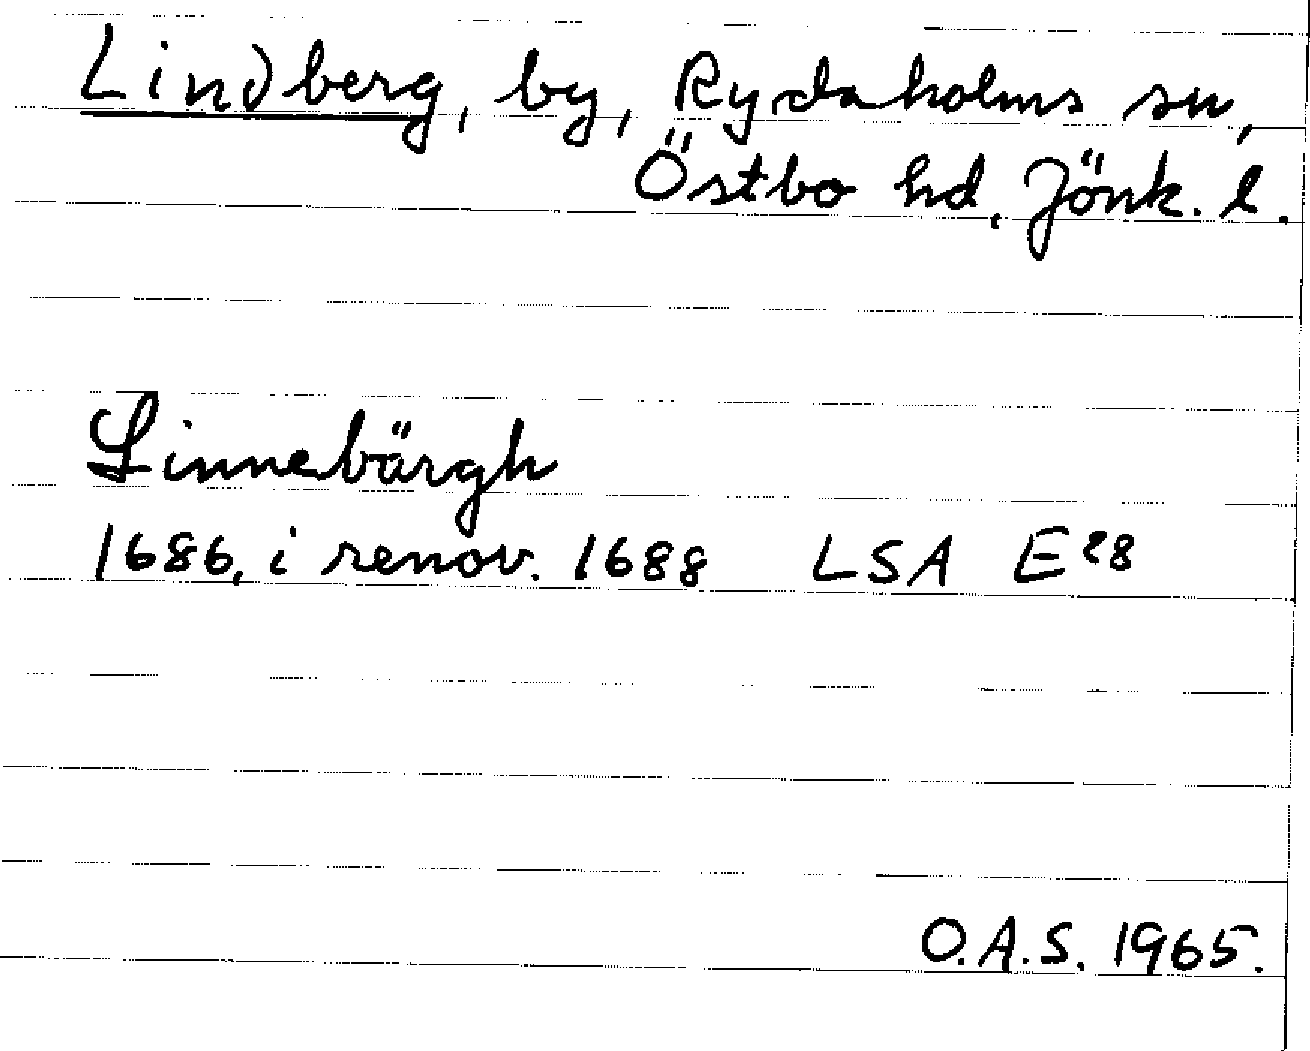 Lindberg, by, Rydaholms sn,
Östbo hd, Jönk. l.
Linnebärgh
1686, i renov. 1688 LSA E²⁸
O.A.S. 1965.